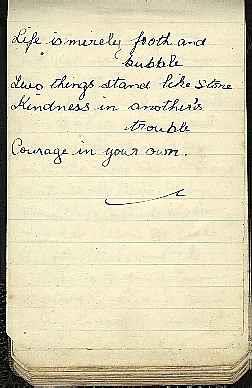 Life is merely froth and
bubble
Two things stand like stone
Kindness in another's
trouble
Courage in your own.